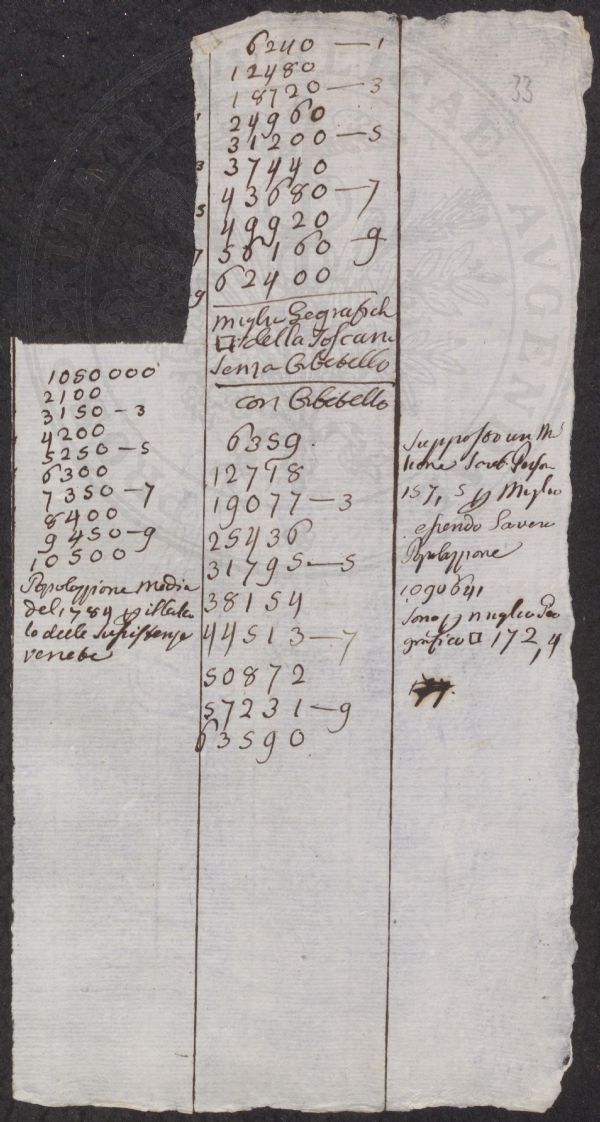 33
6240 — 1
12480
18720 — 3
24960
31200 — 5
37440
43680 — 7
49920
56160 — 9
62400
miglia Gegrafich
□ della Toscana
senza Orbetello
con Orbetello
6359.
12718
19077 — 3
25436
31795 — 5
38154
44513 — 7
50872
57231 — 9
63590
3
5
7
9
1050000
2100
3150 — 3
4200
5250 — 5
6300
7350 — 7
8400
9450 — 9
10500
Popolazione media
del 1784 p
lo delle sussistenze
venete
supposto un Mi
lione
157,5 p Miglio
essendo la vera
Popolazione
1090641
sono p miglio Geo
grafico □ 172,4